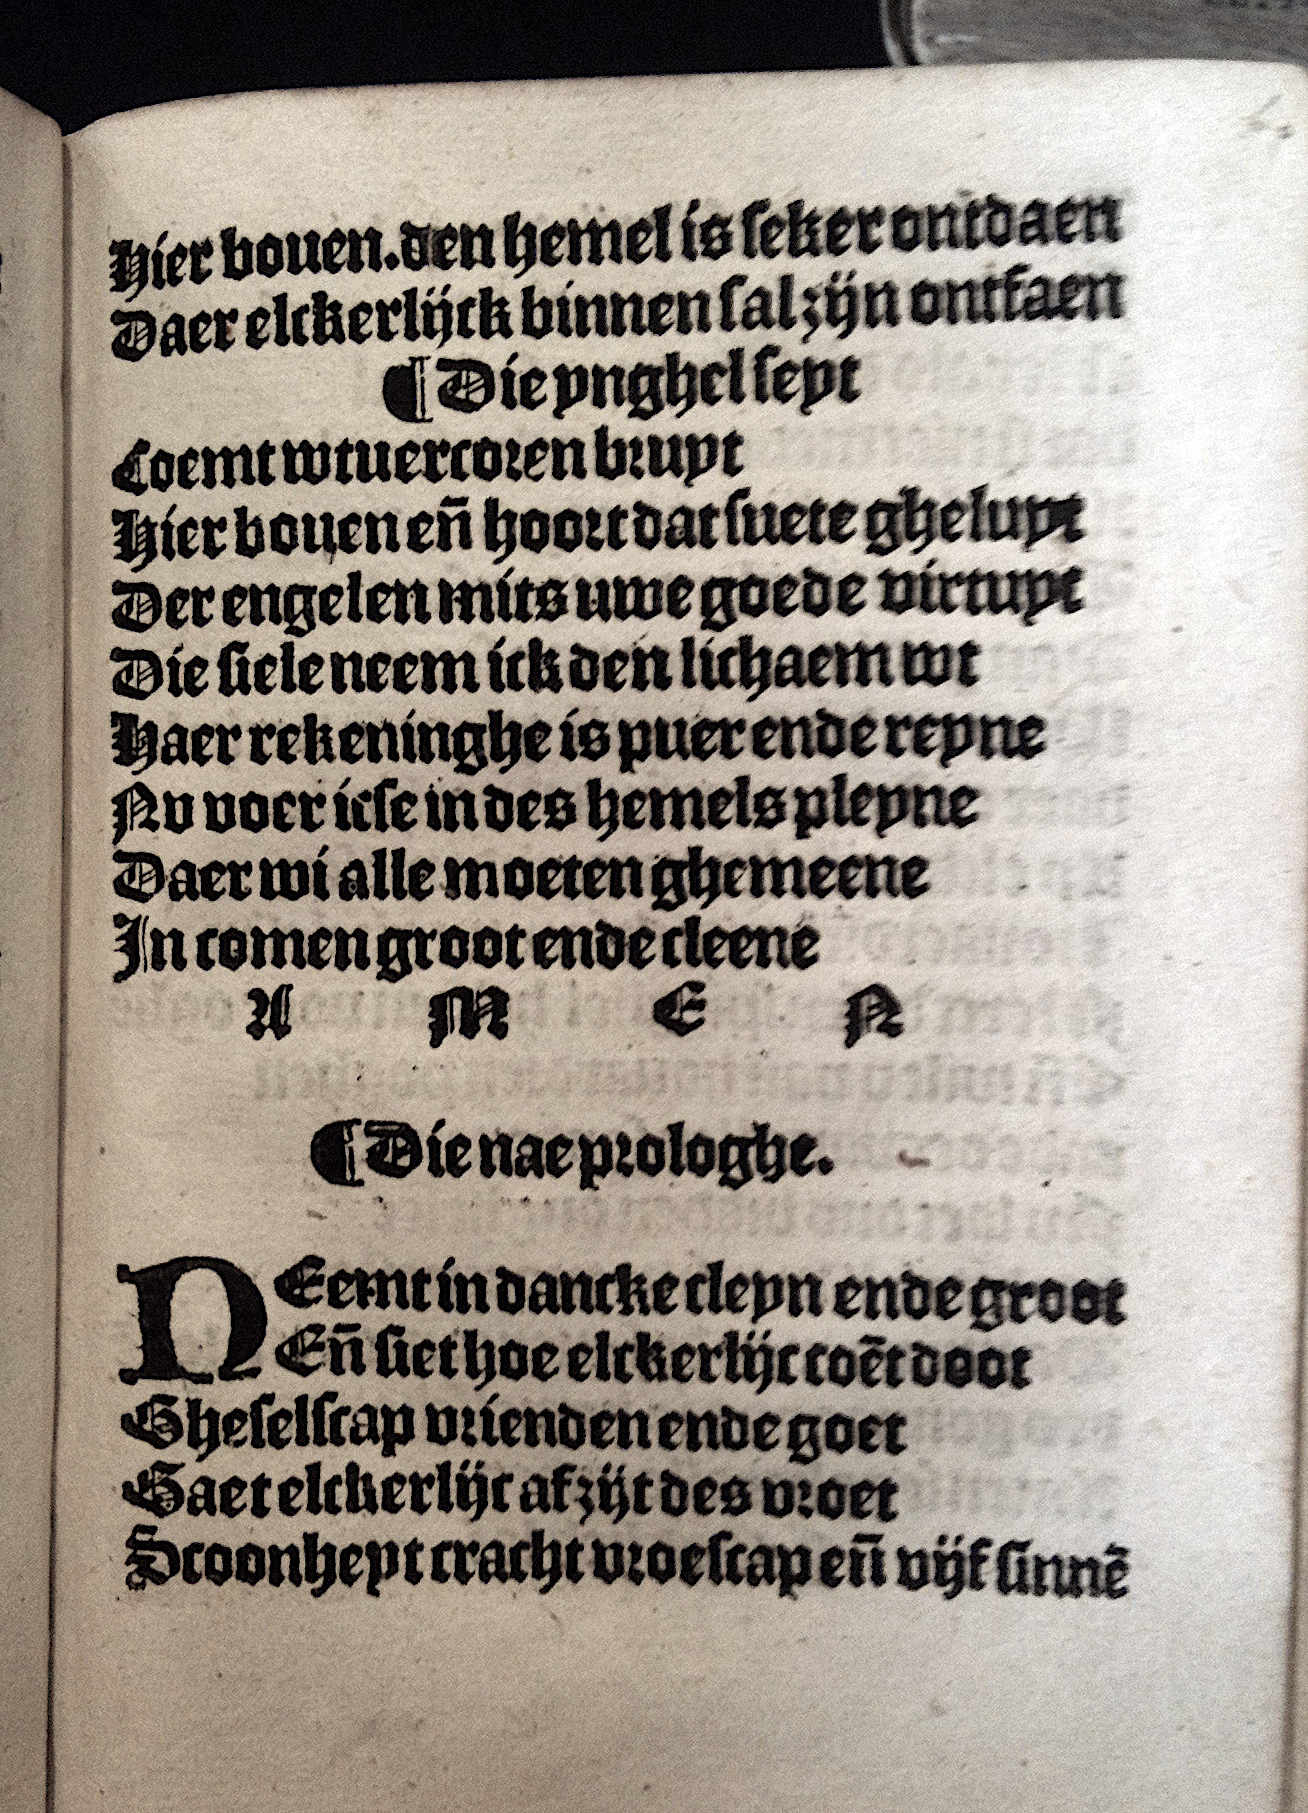 Hier bouen.den hemel is seker ontdaen
Daer elckerlijck binnen sal zijn ontfaen
¶Die ynghel seyt
Coemt wtuercoren bruyt
Hier bouen en̄ hoort dat suete gheluyt
Der engelen mits uwe goede virtuyt
Die siele neem ick den lichaem wt
Haer rekeninghe is puer ende reyne
Nv voer icse in des hemels pleyne
Daer wi alle moeten ghemeene
In comen groot ende cleene
A M E N
¶Die nae prologhe.
NEemt in dancke cleyn ende groot
En̄ siet hoe elckerlijc coēt doot
Gheselscap vrienden ende goet
Gaet elckerlijc af zijt des vroet
Scoonheyt cracht vroescap en̄ vijf sinnē